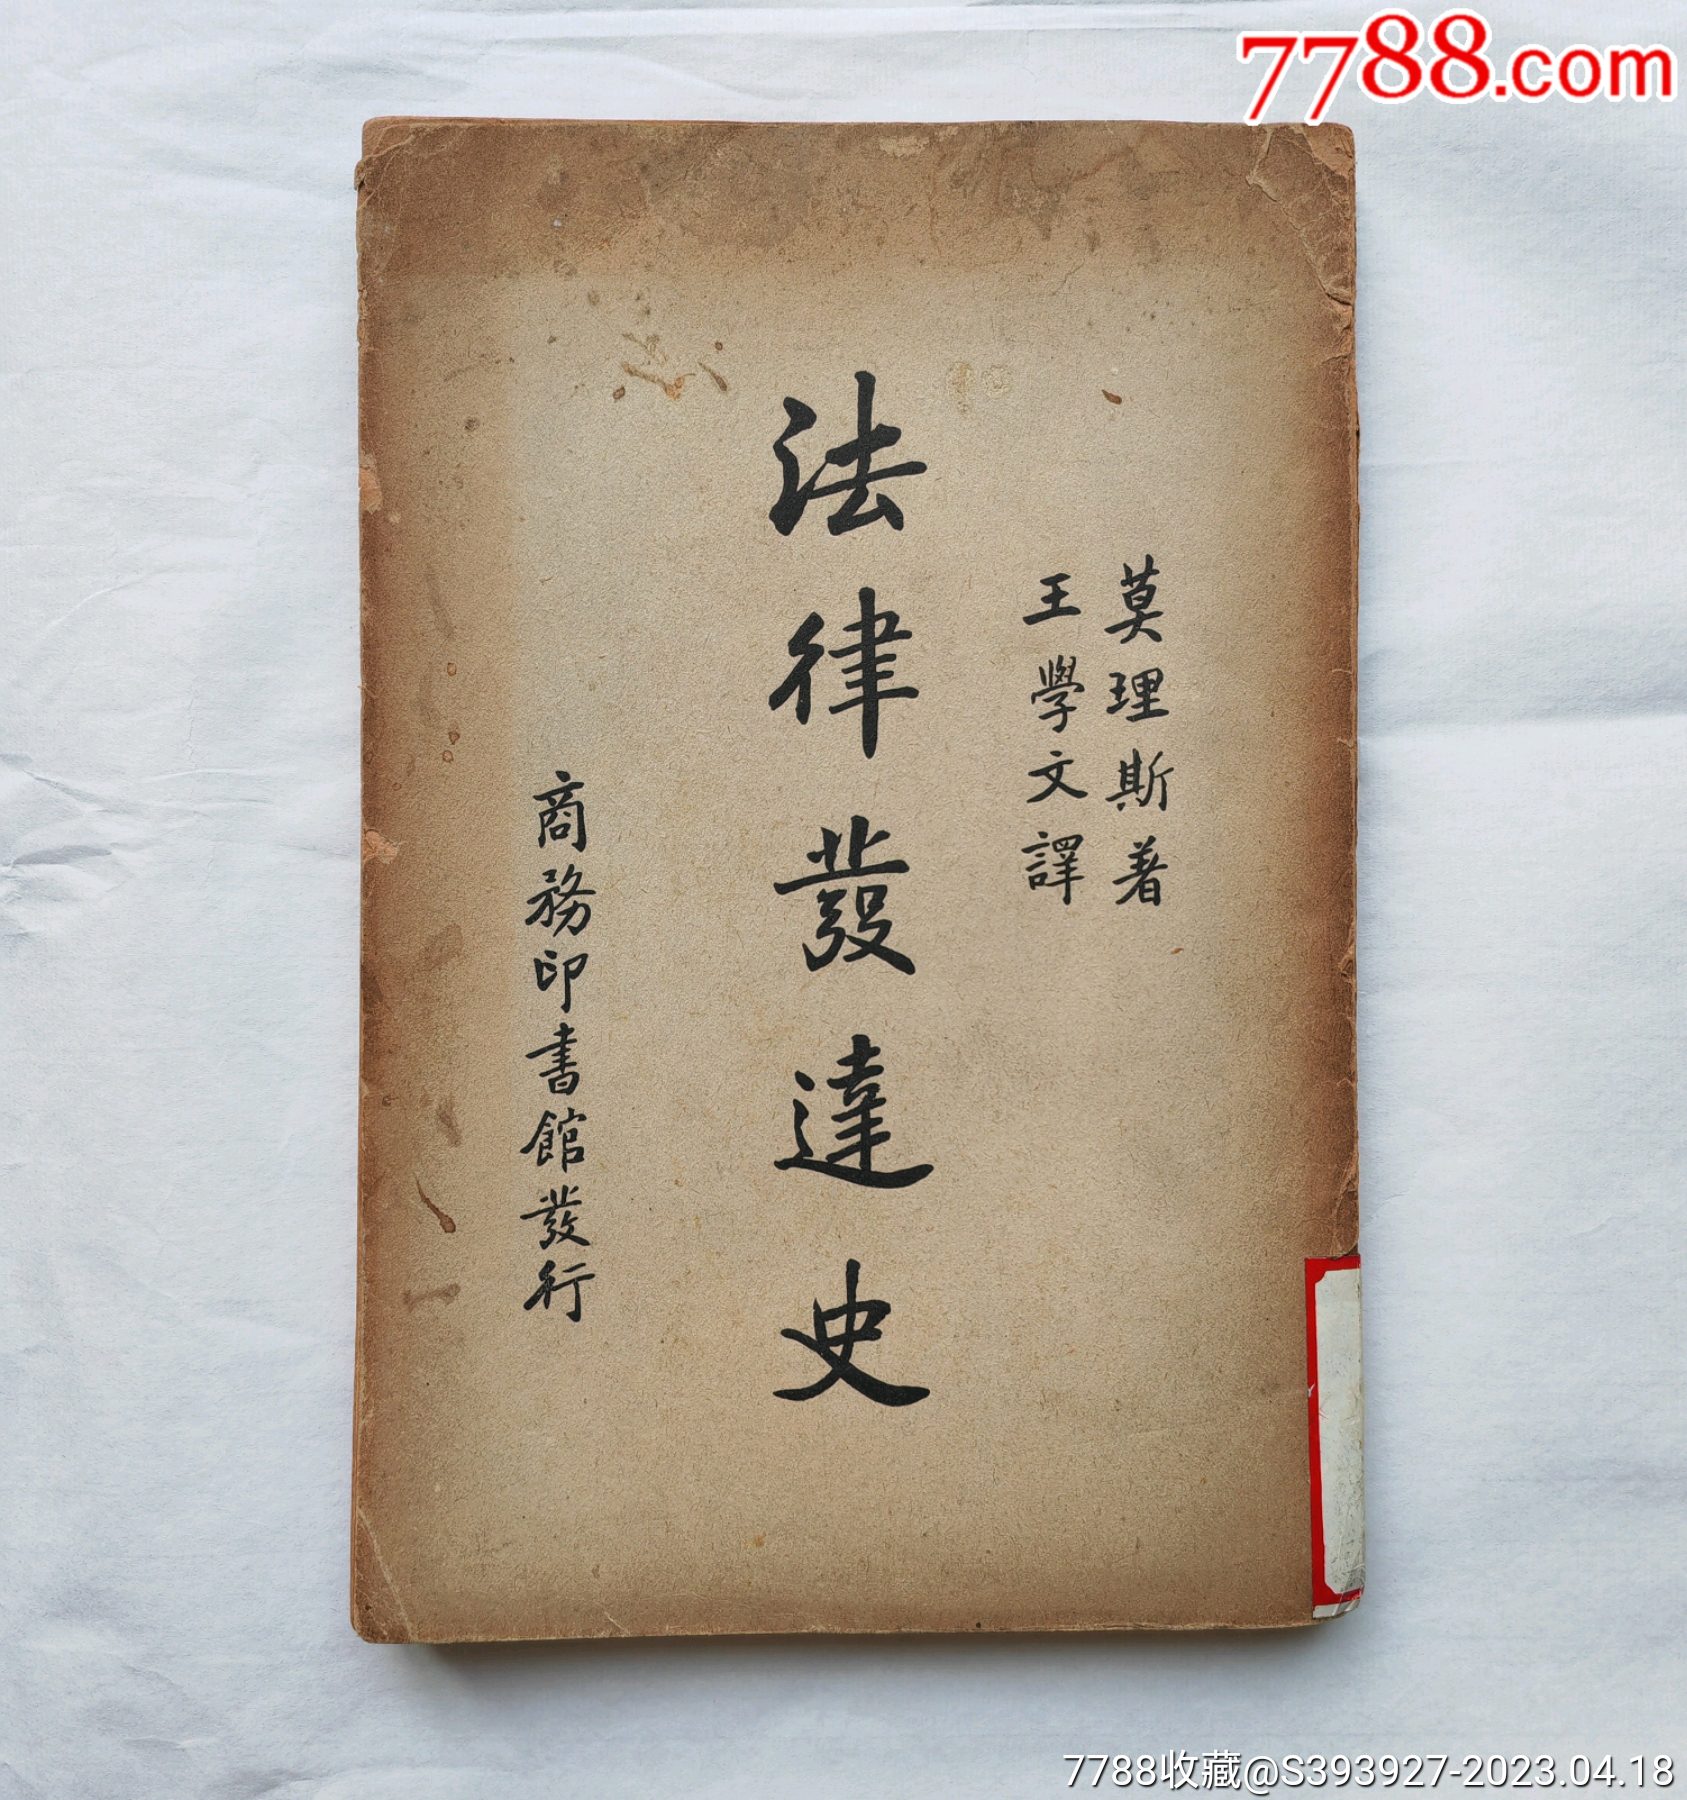 7788.com
莫理斯著
王學文譯
法律發達史
商務印書館發行
7788收藏@S393927-2023.04.18